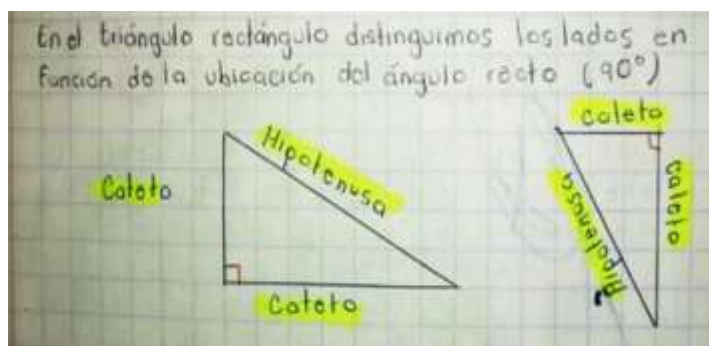 En el triángulo rectángulo distinguimos los lados en
función de la ubicación del ángulo recto (90°)
cateto
Hipotenusa
Cateto
Hipotenusa
cateto
Cateto